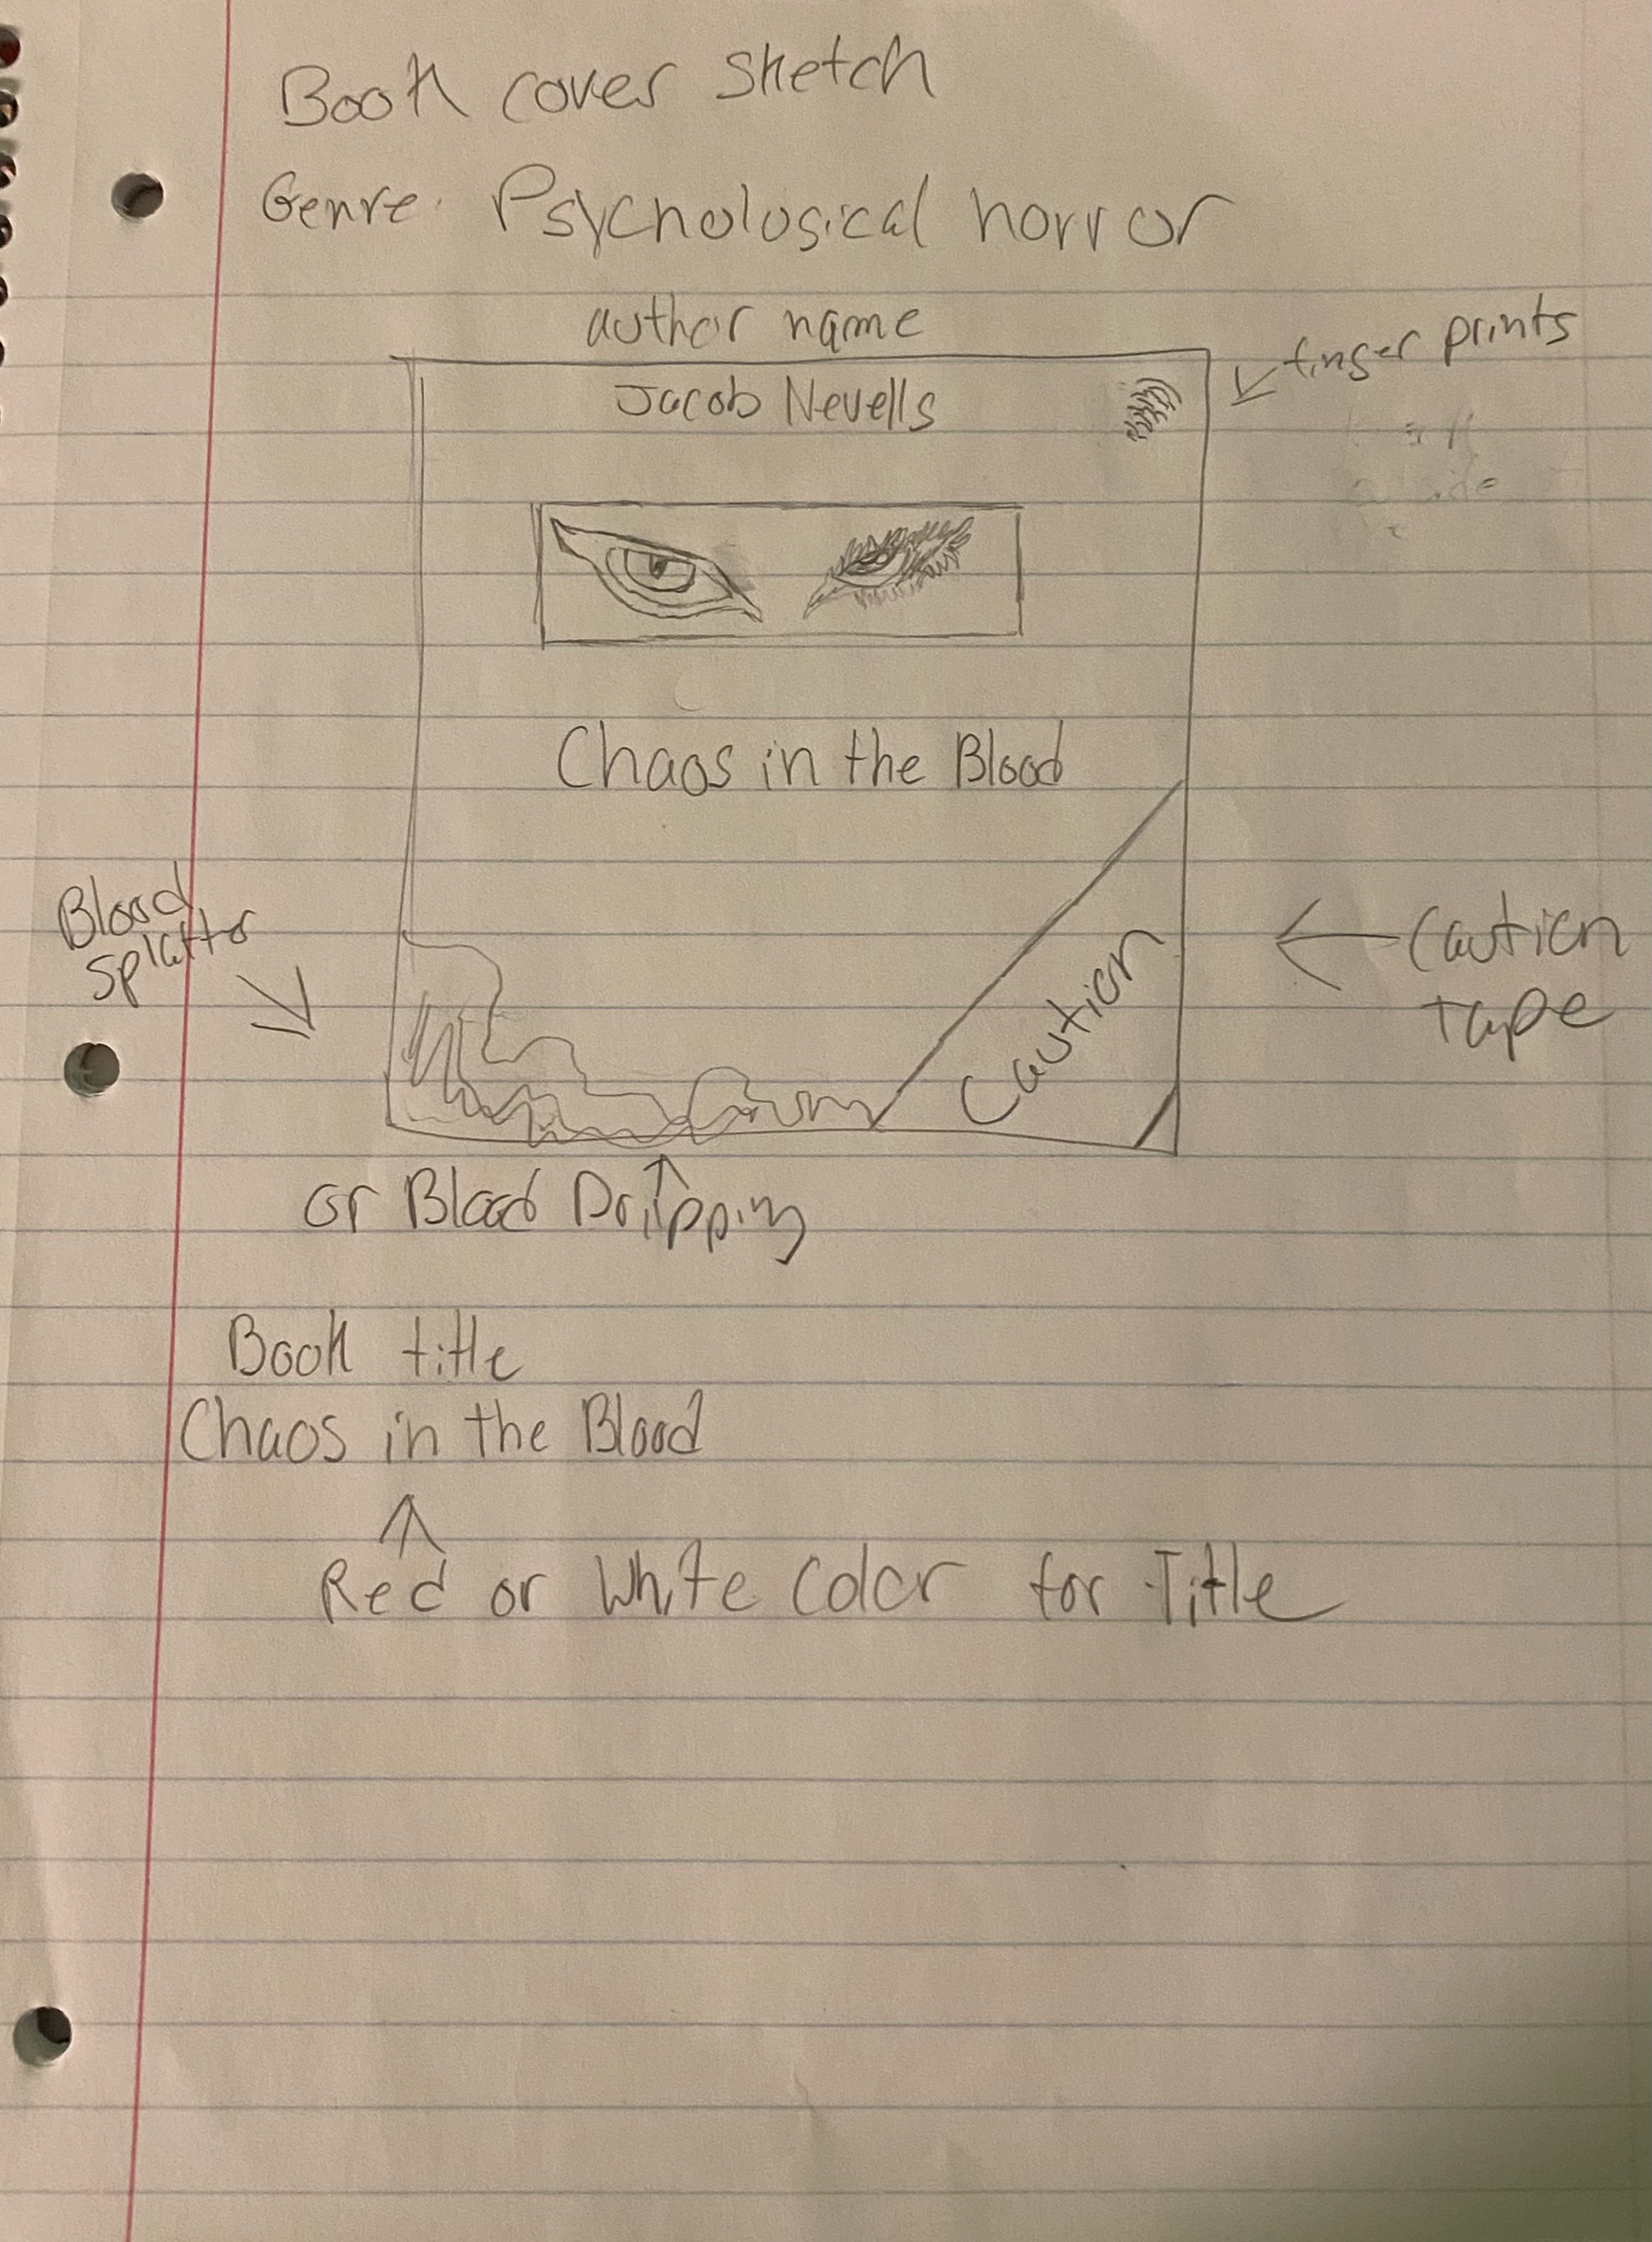 Book cover sketch
Genre: Psychological horror
author name
finger prints
Jacob Nevells
Chaos in the Blood
Blood
Splatter
Caution
Caution
Tape
or Blood Dripping
Book title
Chaos in the Blood
Red or White Color for Title